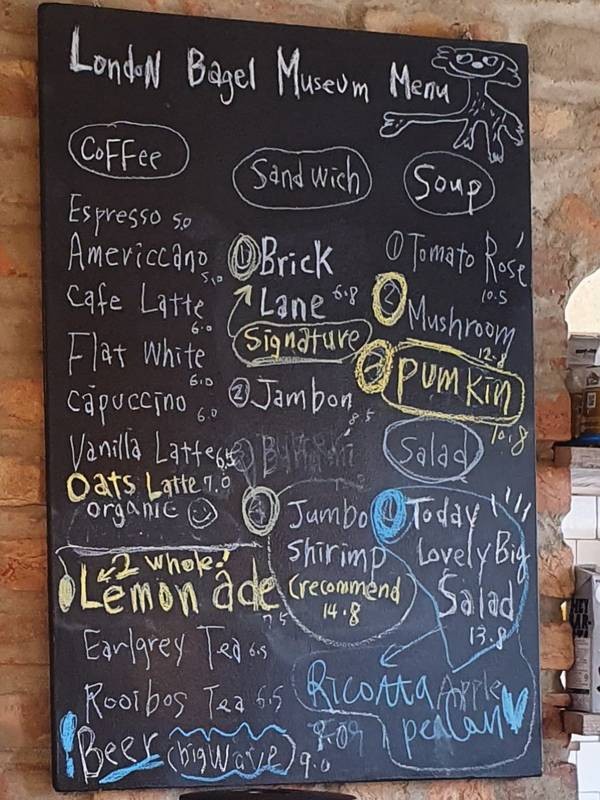 London Bagel Museum Menu
Coffee
Espresso 5.0
Americcano 5.0
Cafe Latte 6.0
Flat White 6.0
Capuccino 6.0
Vanilla Latte 6.5
Oats Latte 7.0
organic
2 whole!
Lemon ade 7.5
Earlgrey Tea 6.5
Rooibos Tea 6.5
Beer (big Wave) 9.0
Sandwich
① Brick
Lane 6.8
Signature
② Jambon 8.5
④ Jumbo
Shirimp
(recommend
14.8
Soup
① Tomato Rosé
10.5
② Mushroom
12.8
③ PUMKIN
10.8
Salad
① Today
Lovely Big
Salad
13.8
Ricotta Apple
pecan